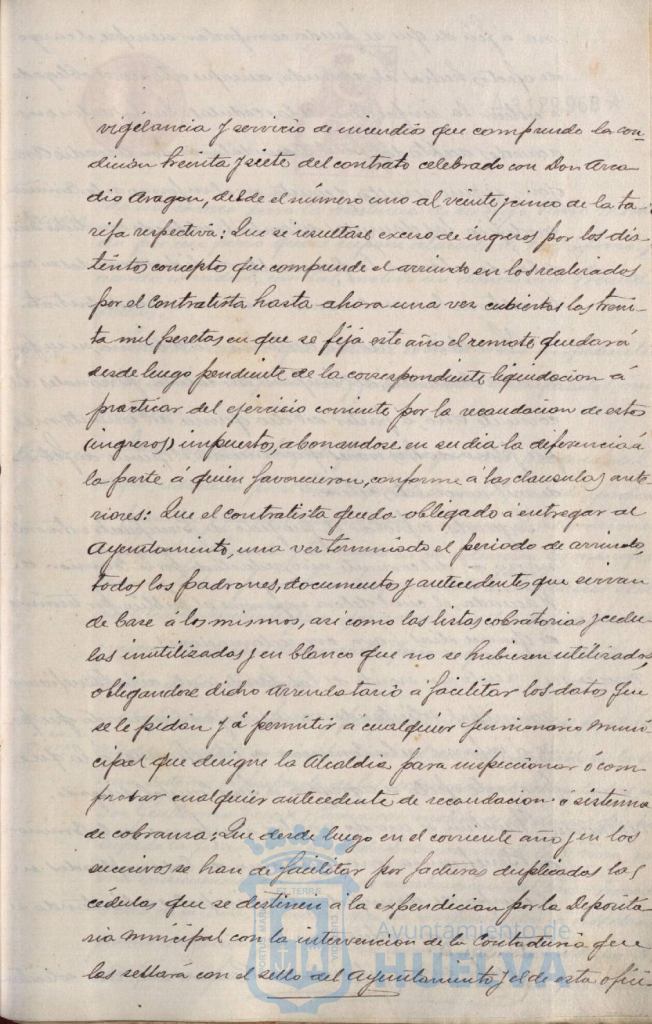 vigilancia y servicio de incendios que comprende la con-
dicion treinta y siete del contrato celebrado con Don Arca
dio Aragon, desde el número uno al veinte y cinco de la ta-
rifa respectiva: Que si resultase exceso de ingresos por los dis-
tintos conceptos que comprende el arriendo en los realizados
por el Contratista hasta ahora una vez cubiertas las trein-
ta mil pesetas en que se fija este año el remate, quedará
desde luego pendiente de la correspondiente liquidacion á
practicar del ejercicio corriente por la recaudacion de estos
(ingresos) impuestos, abonandose en su dia la diferencia á
la parte á quien favorecieron, conforme á las clausulas ante-
riores: Que el contratista queda obligado á entregar al
Ayuntamiento, una vez terminado el periodo de arriendo,
todos los padrones, documentos y antecedentes que sirvan
de base á los mismos, asi como las listas cobratorias y cedu-
las inutilizadas y en blanco que no se hubiesen utilizado,
obligandose dicho arrendatario á facilitar los datos que
se le pidan y á permitir á cualquier funcionario muni
cipal que designe la Alcaldia para inspeccionar ó com-
probar cualquier antecedente de recaudacion ó sistema
de cobranza: Que desde luego en el corriente año y en los
sucesivos se han de facilitar por facturas duplicadas las
cédulas que se destinen á la expendicion por la Deposita
ria Municipal con la intervencion de la Contaduria que
las sellará con el sello del Ayuntamiento y el de esta ofici-
Ayuntamiento de
HUELVA